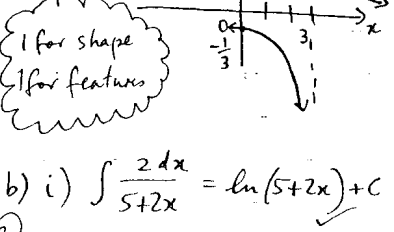 1 for shape
1 for features
0
-1/3
3
x
b) i) ∫ 2 dx / 5+2x = ln(5+2x)+C